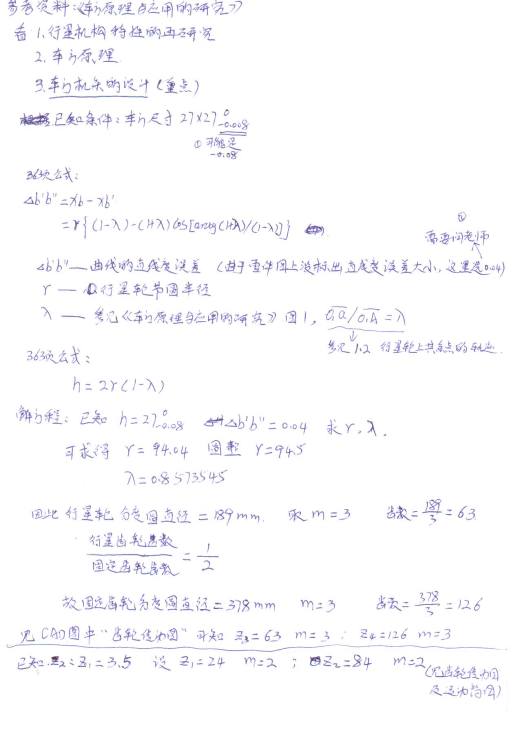 参考资料:《车方原理与应用的研究》
看 1.行星机构特性的再研究
2.车方原理
3.车方机床的设计(重点)
已知条件:车方尺寸 27×27 0 -0.008
① 可能是 -0.08
363项公式:
Δb'b''=xb-xb'
=r{(1-λ)-(1+λ)cos[arccos(1+λ)/(1-λ)]}
① 需要问老师
Δb'b''—曲线的直线度误差(由于零件图上没标出直线度误差大小,这里选0.04)
r — 行星轮节圆半径
λ — 参见《车方原理与应用的研究》图1, =λ
参见1.2 行星轮上共系点的轨迹.
363项公式:
h=2r(1-λ)
解方程: 已知 h=27 0 -0.08 Δb'b''=0.04 求 r,λ.
可求得 r=94.04 圆整 r=94.5
λ=0.8573545
因此 行星轮 分度圆直径=189mm. 取 m=3 齿数=189/3=63
行星齿轮齿数/固定齿轮齿数=1/2
故固定齿轮分度圆直径=378mm m=3 齿数=378/3=126
见CAD图中"齿轮传动图"可知 Z3=63 m=3; Z4=126 m=3
已知 Z2:Z1=3.5 设 Z1=24 m=2 ; Z2=84 m=2 (见齿轮传动图
及运动简图)